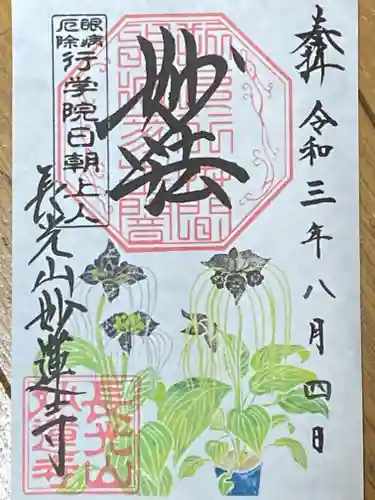 奉拝 令和三年八月四日
妙法
眼病
厄除
行学院日朝上人
長光山妙蓮寺
長光山
妙蓮寺